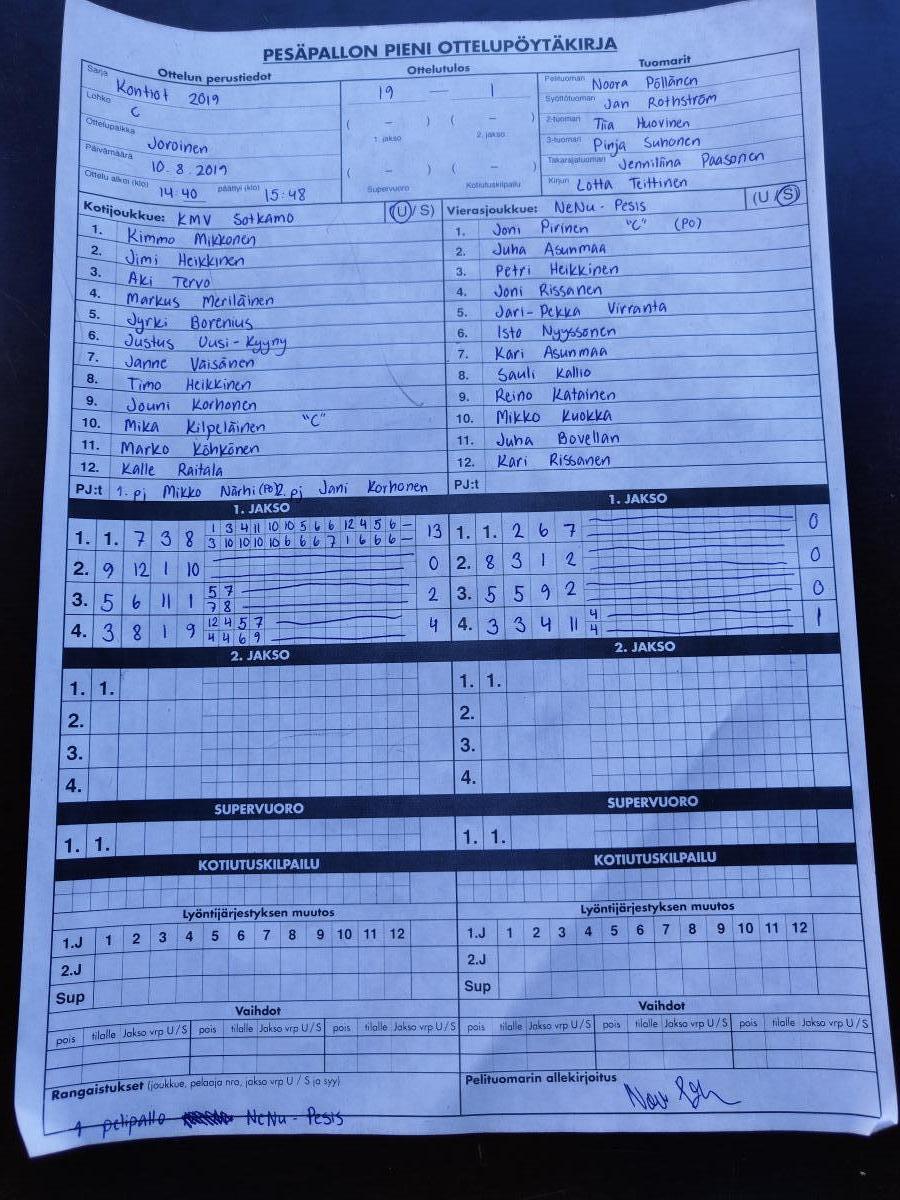 PESÄPALLON PIENI OTTELUPÖYTÄKIRJA
Ottelun perustiedot
Sarja Kontiot 2019
Lohko C
Ottelupaikka Joroinen
Päivämäärä 10.8.2019
Ottelu alkoi (klo) 14:40 päättyi (klo) 15:48
Ottelutulos
19 — 1
( – ) ( – )
1. jakso 2. jakso
( – ) ( – )
Supervuoro Kotiutuskilpailu
Tuomarit
Pelituomari Noora Pöllänen
Syöttötuomari Jan Rothström
2-tuomari Tiia Huovinen
3-tuomari Pinja Suhonen
Takarajatuomari Jenniliina Paasonen
Kirjuri Lotta Teittinen
Kotijoukkue: KMV Sotkamo (U / S)
1. Kimmo Mikkonen
2. Jimi Heikkinen
3. Aki Tervo
4. Markus Meriläinen
5. Jyrki Borenius
6. Justus Uusi-Kyyny
7. Janne Väisänen
8. Timo Heikkinen
9. Jouni Korhonen
10. Mika Kilpeläinen "C"
11. Marko Köhkönen
12. Kalle Raitala
PJ:t 1. pj Mikko Närhi (PO) 2. pj Jani Korhonen
Vierasjoukkue: NeNu - Pesis (U / S)
1. Joni Pirinen "C" (PO)
2. Juha Asunmaa
3. Petri Heikkinen
4. Joni Rissanen
5. Jari-Pekka Virranta
6. Isto Nyyssönen
7. Kari Asunmaa
8. Sauli Kallio
9. Reino Katainen
10. Mikko Kuokka
11. Juha Bovellan
12. Kari Rissanen
PJ:t
1. JAKSO
1. 1. 7 3 8 1 3 4 11 10 10 5 6 6 12 4 5 6 – 13
3 10 10 10 10 6 6 6 7 1 6 6 6 –
2. 9 12 1 10 0
3. 5 6 11 1 5 7 2
7 8
4. 3 8 1 9 12 4 5 7 4
4 4 6 9
1. JAKSO
1. 1. 2 6 7 0
2. 8 3 1 2 0
3. 5 5 9 2 0
4. 3 3 4 11 4 1
4
2. JAKSO
1. 1.
2.
3.
4.
2. JAKSO
1. 1.
2.
3.
4.
SUPERVUORO
1. 1.
SUPERVUORO
1. 1.
KOTIUTUSKILPAILU
KOTIUTUSKILPAILU
Lyöntijärjestyksen muutos
1.J 1 2 3 4 5 6 7 8 9 10 11 12
2.J
Sup
Lyöntijärjestyksen muutos
1.J 1 2 3 4 5 6 7 8 9 10 11 12
2.J
Sup
Vaihdot
pois tilalle Jakso vrp U / S pois tilalle Jakso vrp U / S pois tilalle Jakso vrp U / S
Vaihdot
pois tilalle Jakso vrp U / S pois tilalle Jakso vrp U / S pois tilalle Jakso vrp U / S
Rangaistukset (joukkue, pelaaja nro, jakso vrp U / S ja syy)
1 pelipallo NeNu - Pesis
Pelituomarin allekirjoitus